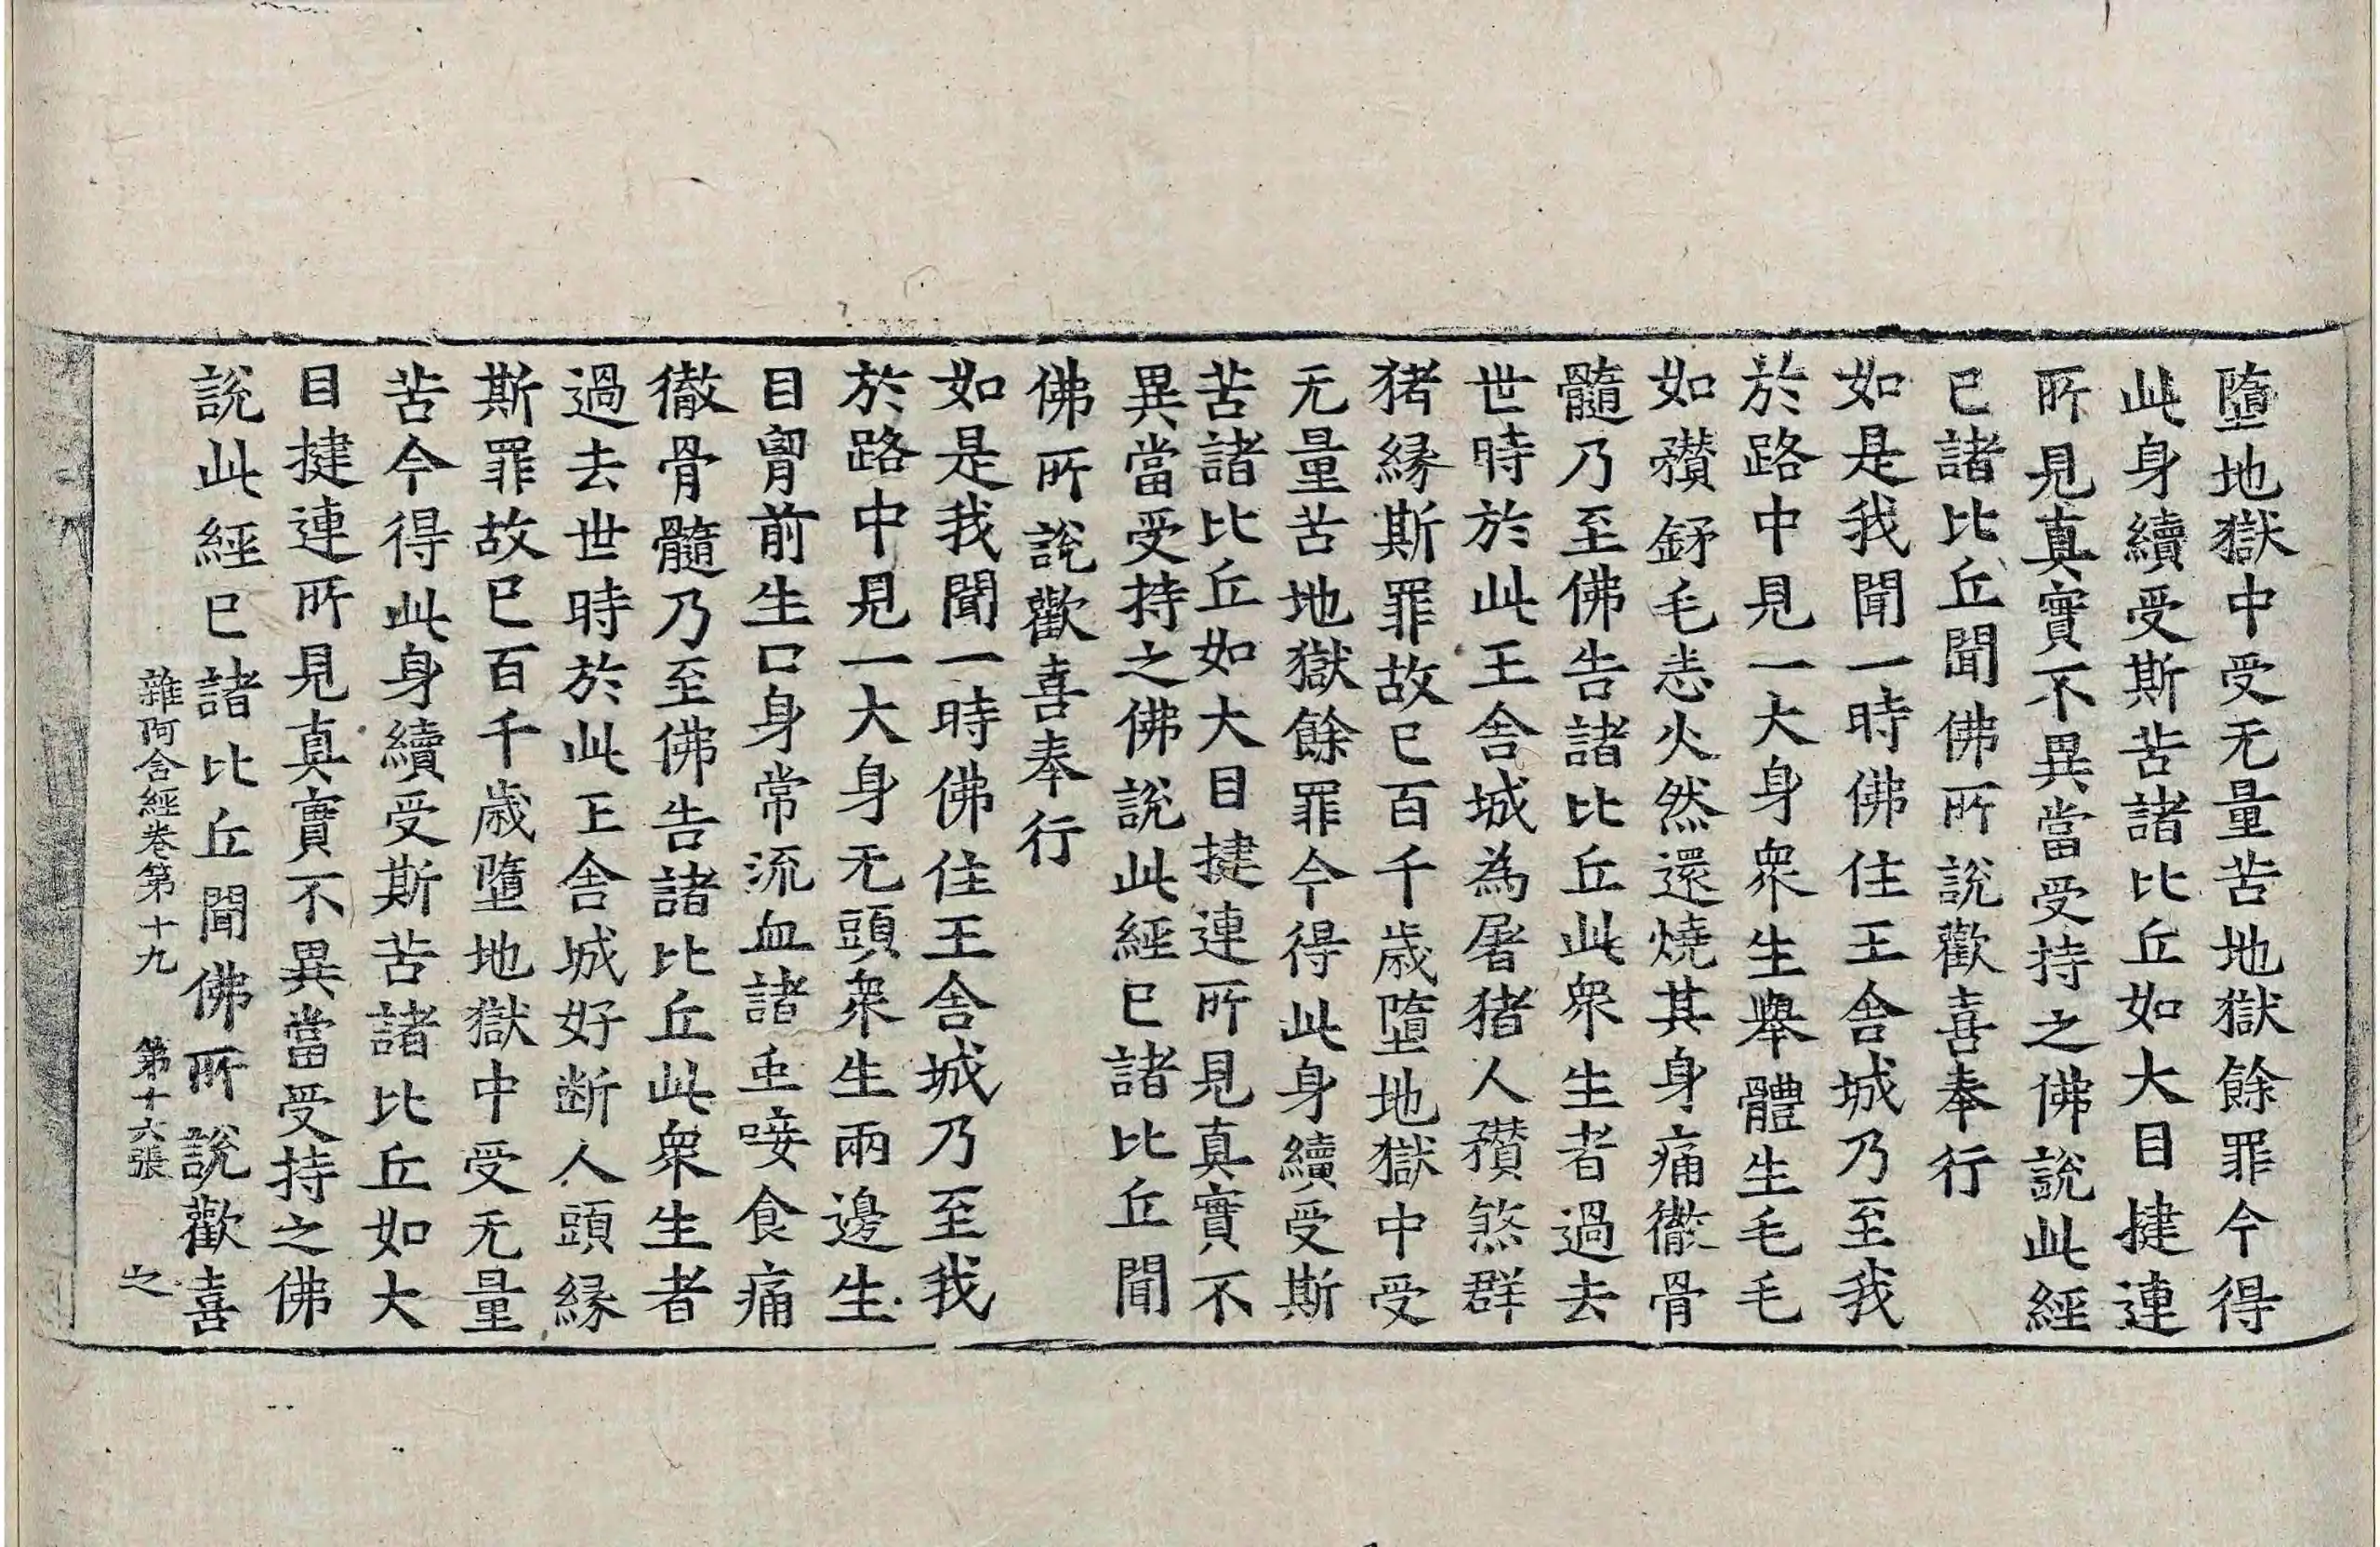 墮地獄中受无量苦地獄餘罪今得
此身續受斯苦諸比丘如大目揵連
所見真實不異當受持之佛說此經
已諸比丘聞佛所說歡喜奉行
如是我聞一時佛住王舍城乃至我
於路中見一大身衆生舉體生毛毛
如𥎞釫毛恙火然還燒其身痛徹骨
髓乃至佛告諸比丘此衆生者過去
世時於此王舍城為屠猪人𥎞煞群
猪縁斯罪故已百千歲墮地獄中受
无量苦地獄餘罪今得此身續受斯
苦諸比丘如大目揵連所見真實不
異當受持之佛說此經已諸比丘聞
佛所說歡喜奉行
如是我聞一時佛住王舍城乃至我
於路中見一大身无頭衆生兩邊生
目胷前生口身常流血諸䖝唼食痛
徹骨髓乃至佛告諸比丘此衆生者
過去世時於此王舍城好断人頭縁
斯罪故已百千歲墮地獄中受无量
苦今得此身續受斯苦諸比丘如大
目揵連所見真實不異當受持之佛
說此經已諸比丘聞佛所說歡喜
雜阿含經卷第十九 第十六張 之